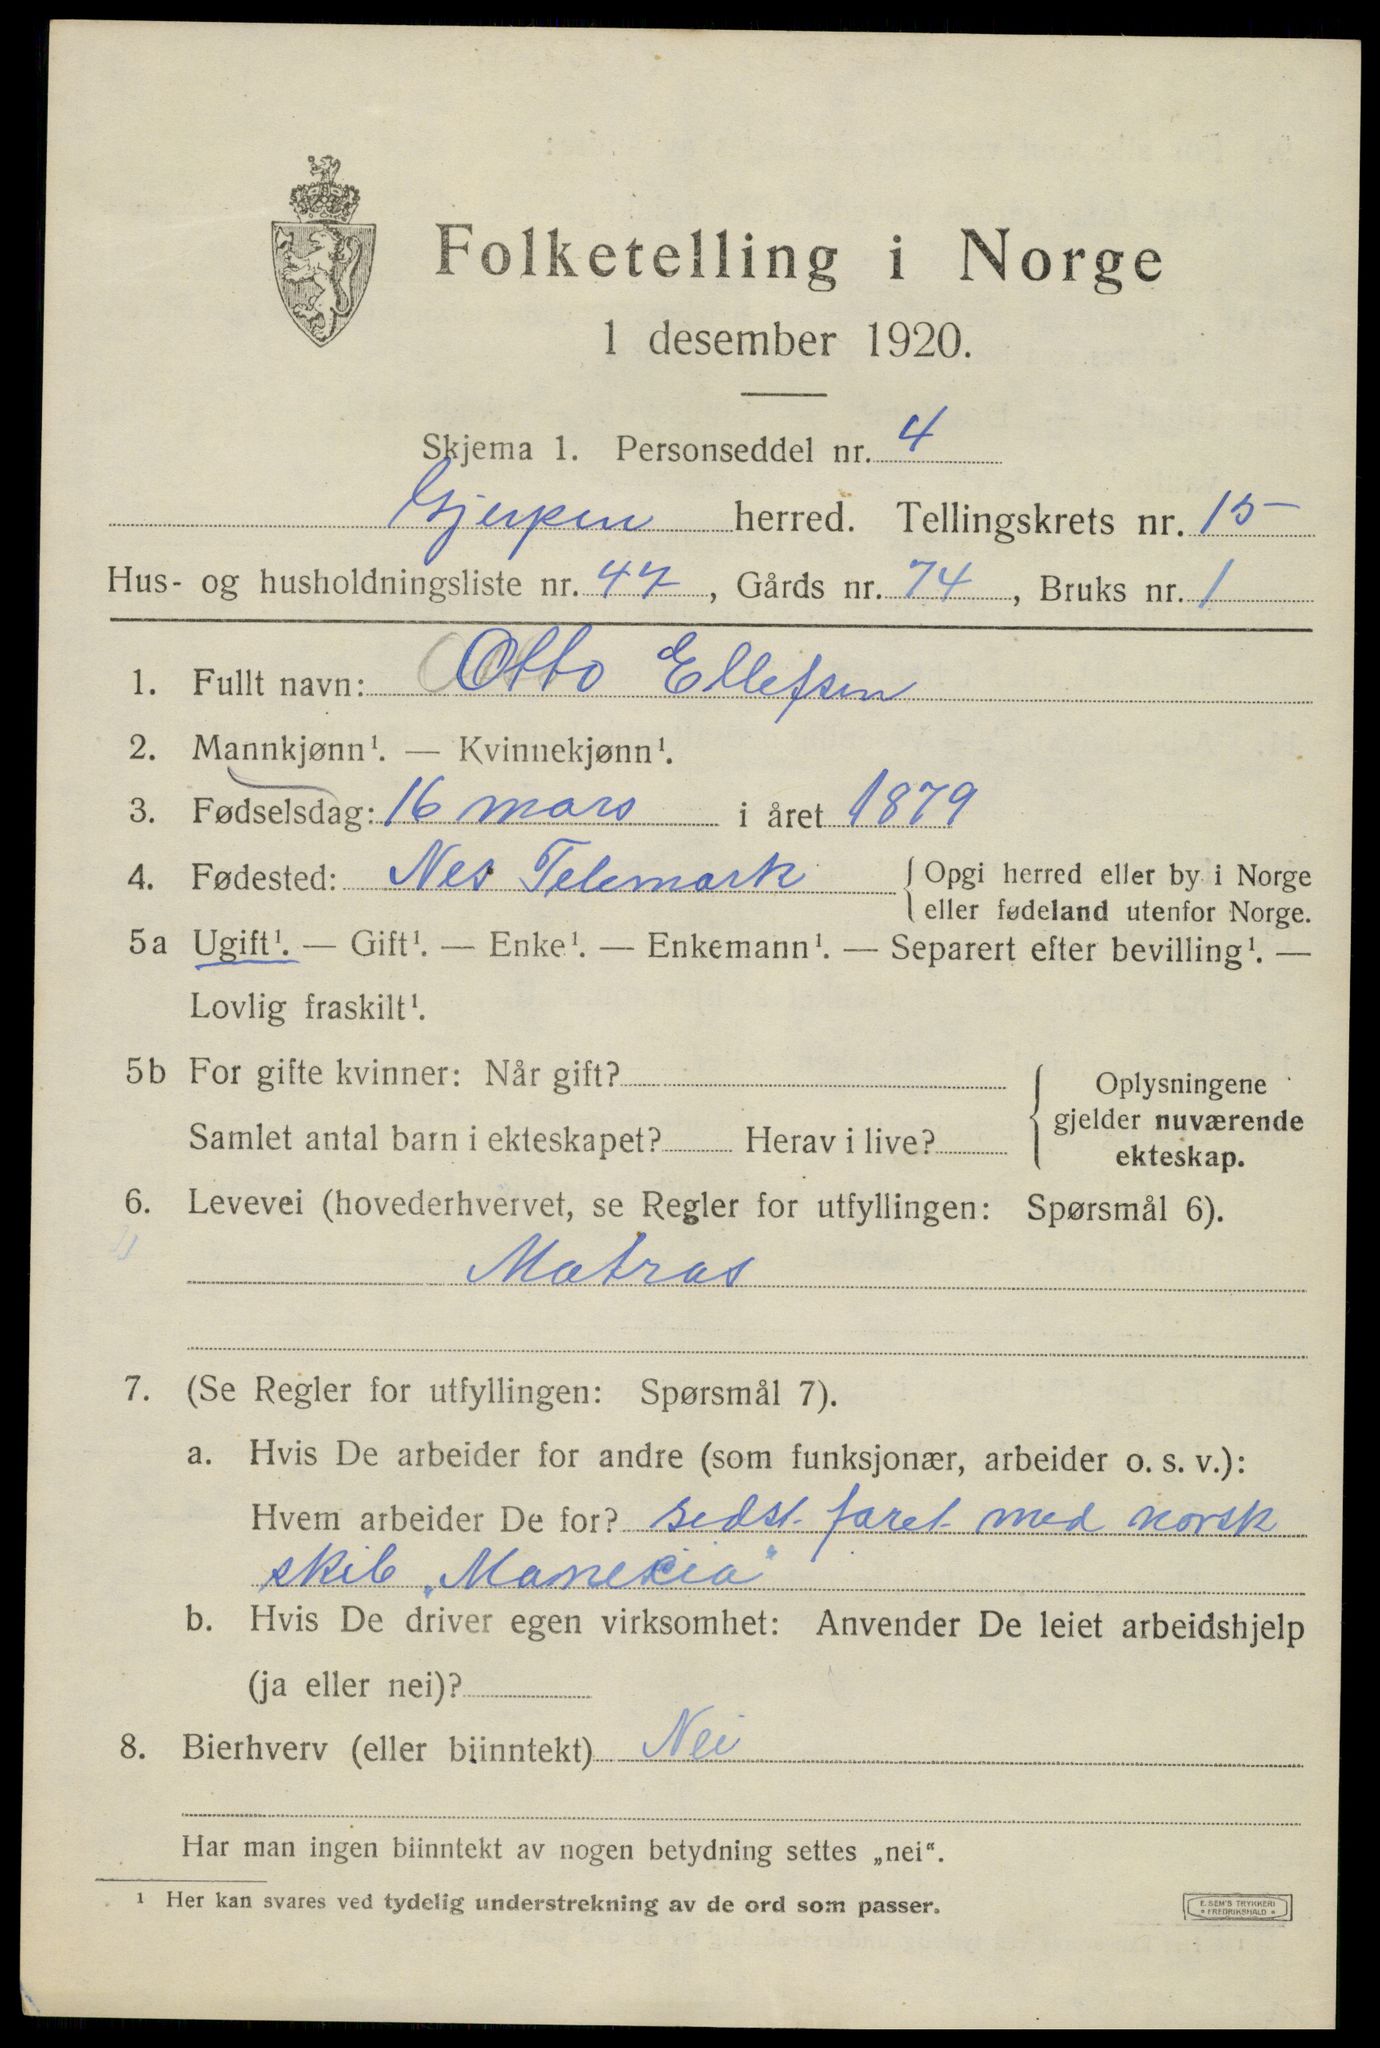 Folketelling i Norge
1 desember 1920.
Skjema 1. Personseddel nr. 4
Gjerpen herred. Tellingskrets nr. 15
Hus- og husholdningsliste nr. 47, Gårds nr. 74, Bruks nr. 1
1. Fullt navn: Otto Ellefsen
2. Mannkjønn¹. — Kvinnekjønn¹.
3. Fødselsdag: 16 mars i året 1879
4. Fødested: Nes Telemark { Opgi herred eller by i Norge
eller fødeland utenfor Norge.
5a Ugift¹. — Gift¹. — Enke¹. — Enkemann¹. — Separert efter bevilling¹. —
Lovlig fraskilt¹.
5b For gifte kvinner: Når gift?
Samlet antal barn i ekteskapet? Herav i live?
Oplysningene
gjelder nuværende
ekteskap.
6. Levevei (hovederhvervet, se Regler for utfyllingen: Spørsmål 6).
Matras
7. (Se Regler for utfyllingen: Spørsmål 7).
a. Hvis De arbeider for andre (som funksjonær, arbeider o. s. v.):
Hvem arbeider De for? sedst faret med norsk
skib
b. Hvis De driver egen virksomhet: Anvender De leiet arbeidshjelp
(ja eller nei)?
8. Bierhverv (eller biinntekt) Nei
Har man ingen biinntekt av nogen betydning settes „nei“.
¹ Her kan svares ved tydelig understrekning av de ord som passer.
E. SEM'S TRYKKERI
FREDRIKSHALD